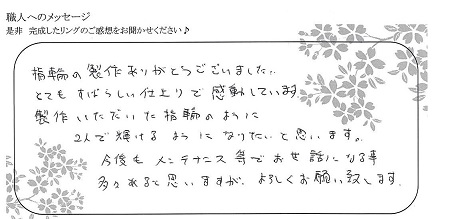 職人へのメッセージ
是非 完成したリングのご感想をお聞かせください♪
指輪の製作ありがとうございました。
とてもすばらしい仕上りで感動しています
製作いただいた指輪のように
2人で輝けるようになりたいと思います。
今後もメンテナンス等でお世話になる事
多々あると思いますが、よろしくお願い致します。